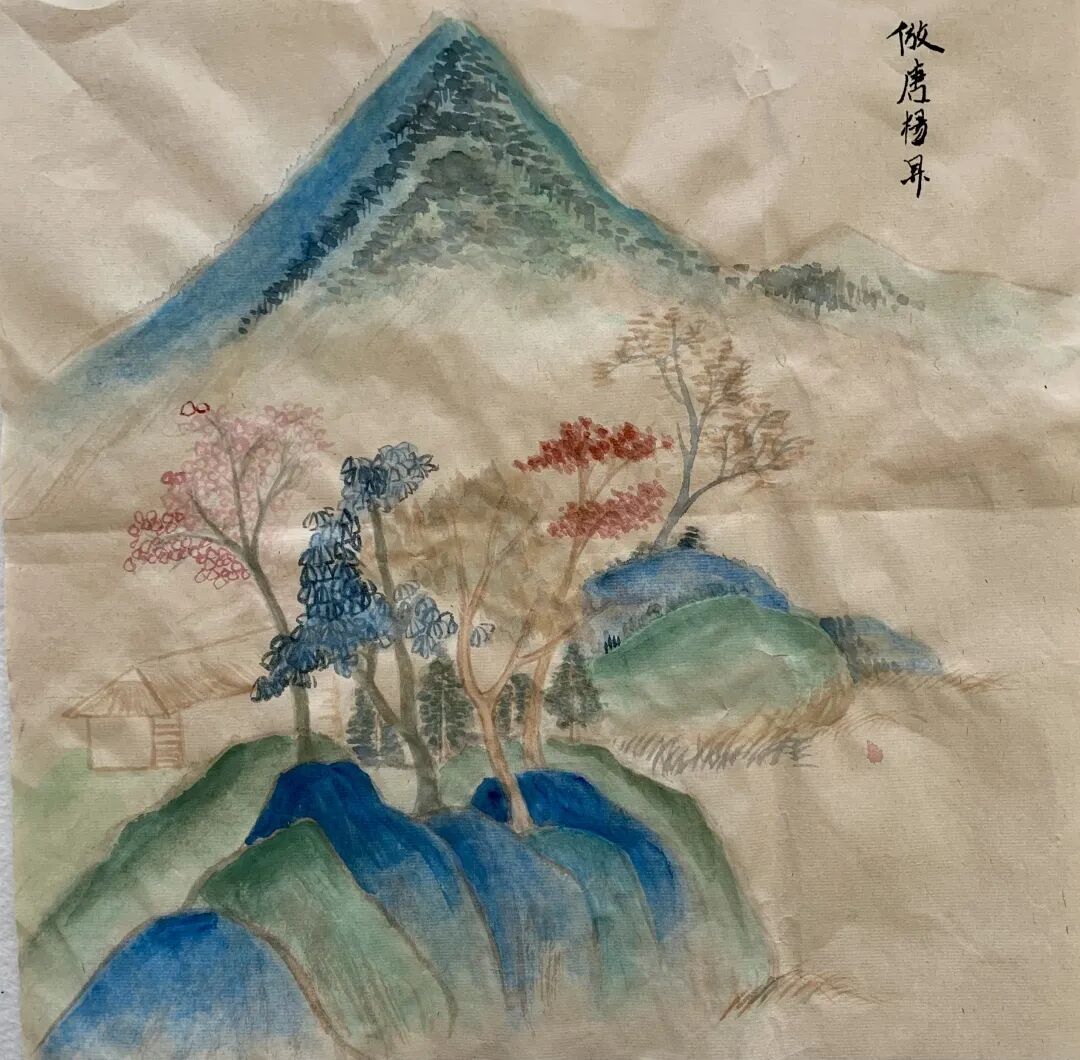 倣唐楊昇